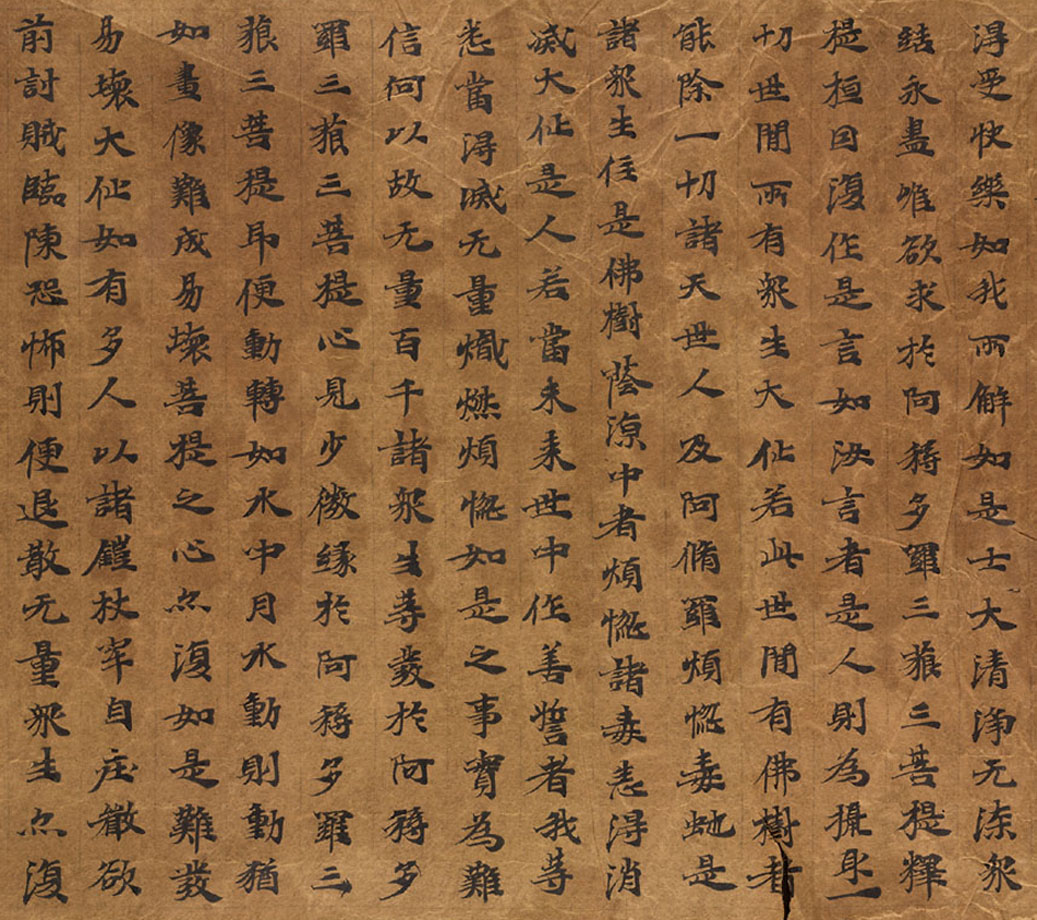 得受快樂如我所解如是士大清淨无染眾
結永盡唯欲求於阿耨多羅三藐三菩提釋
提桓因復作是言如汝言者是人則為攝取一
切世間所有眾生大仙若此世間有佛樹者
能除一切諸天世人及阿脩羅煩惱毒虵是
諸眾生住是佛樹蔭涼中者煩惱諸毒悉得消
滅大仙是人若當未來世中作善誓者我等
悉當得滅无量熾燃煩惱如是之事實為難
信何以故无量百千諸眾生等發於阿耨多
羅三藐三菩提心見少微緣於阿耨多羅三
藐三菩提即便動轉如水中月水動則動猶
如畫像難成易壞菩提之心亦復如是難發
易壞大仙如有多人以諸鎧杖牢自庄嚴欲
前討賊臨陳恐怖則便退散无量眾生亦復